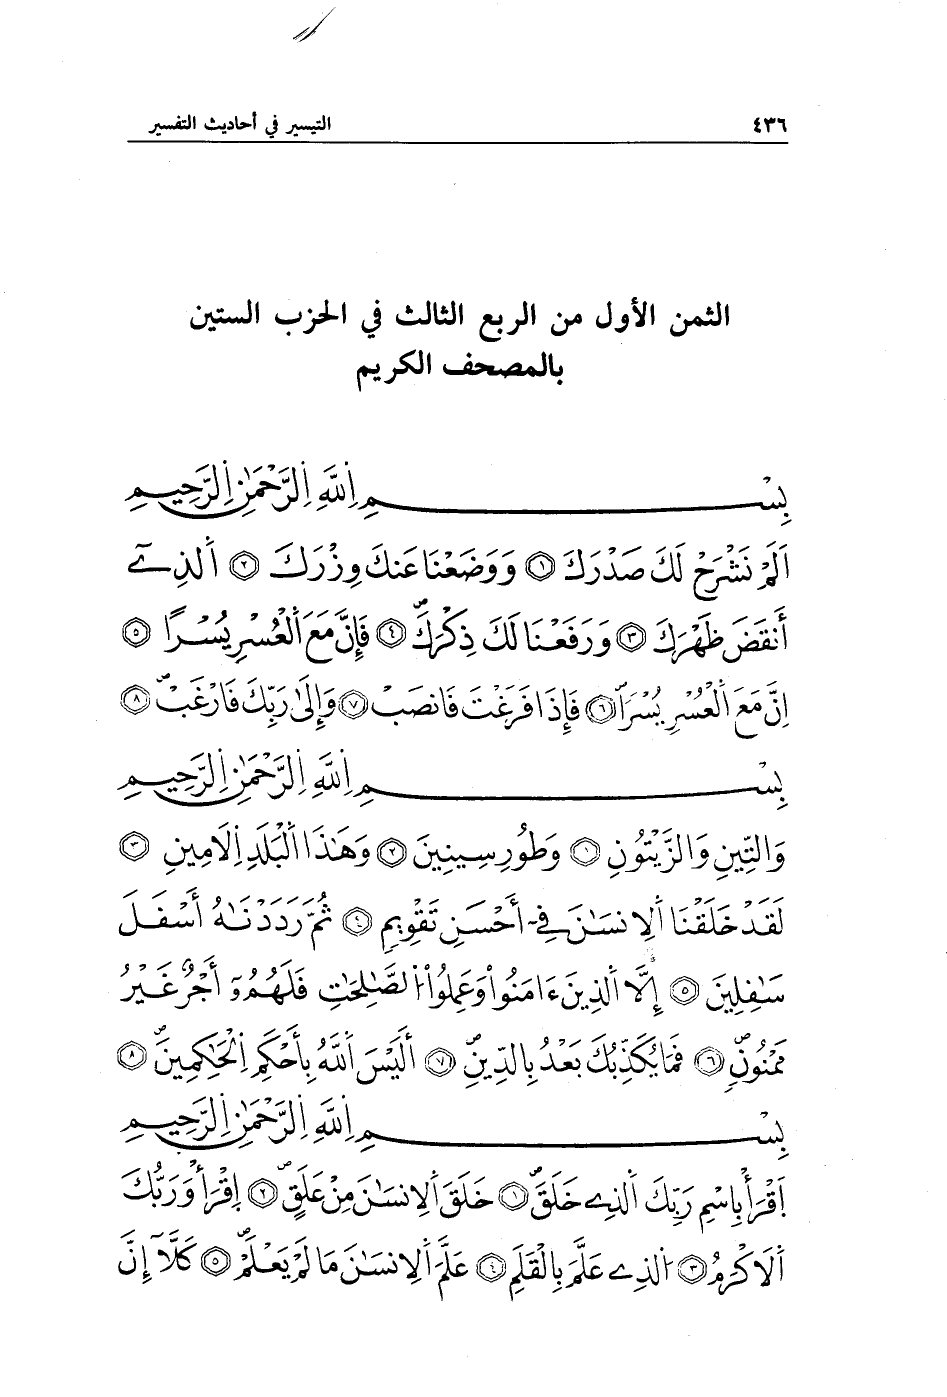 ٤٣٦ التيسير في أحاديث التفسير
الثمن الأول من الربع الثالث في الحزب الستين
بالمصحف الكريم
بِسْمِ اِللَّهِ اِلرَّحْمَٰنِ اِلرَّحِيمِ
أَلَمْ نَشْرَحْ لَكَ صَدْرَكَ ١ وَوَضَعْنَا عَنكَ وِزْرَكَ ٢ اَلَذِےٓ
أَنقَضَ ظَهْرَكَ ٣ وَرَفَعْنَا لَكَ ذِكْرَكَۖ ٤ فَإِنَّ مَعَ اَلْعُسْرِ يُسْراً ٥
اِنَّ مَعَ اَلْعُسْرِ يُسْراٗۖ ٦ فَإِذَا فَرَغْتَ فَانصَبْ ٧ وَإِلَىٰ رَبِّكَ فَارْغَبْۖ ٨
بِسْمِ اِللَّهِ اِلرَّحْمَٰنِ اِلرَّحِيمِ
وَالتِّينِ وَالزَّيْتُونِ ١ وَطُورِ سِينِينَ ٢ وَهَٰذَا اَلْبَلَدِ اِلَامِينِ ٣
لَقَدْ خَلَقْنَا اَلِانسَٰنَ فِےٓ أَحْسَنِ تَقْوِيمٖ ٤ ثُمَّ رَدَدْنَٰهُ أَسْفَلَ
سَٰفِلِينَ ٥ إِلَّا اَلذِينَ ءَامَنُواْ وَعَمِلُواْ اُلصَّٰلِحَٰتِ فَلَهُمُۥٓ أَجْرٌ غَيْرُ
مَمْنُونٖۖ ٦ فَمَا يُكَذِّبُكَ بَعْدُ بِالدِّينِۖ ٧ أَلَيْسَ اَللَّهُ بِأَحْكَمِ اِلْحَٰكِمِينَۖ ٨
بِسْمِ اِللَّهِ اِلرَّحْمَٰنِ اِلرَّحِيمِ
اِقْرَأْ بِاسْمِ رَبِّكَ اَلذِے خَلَقَۖ ١ خَلَقَ اَلِانسَٰنَ مِنْ عَلَقٍۖ ٢ اِقْرَأْ وَرَبُّكَ
اَلَاكْرَمُ ٣ اُلذِے عَلَّمَ بِالْقَلَمِ ٤ عَلَّمَ اَلِانسَٰنَ مَا لَمْ يَعْلَمْۖ ٥ كَلَّآ إِنَّ